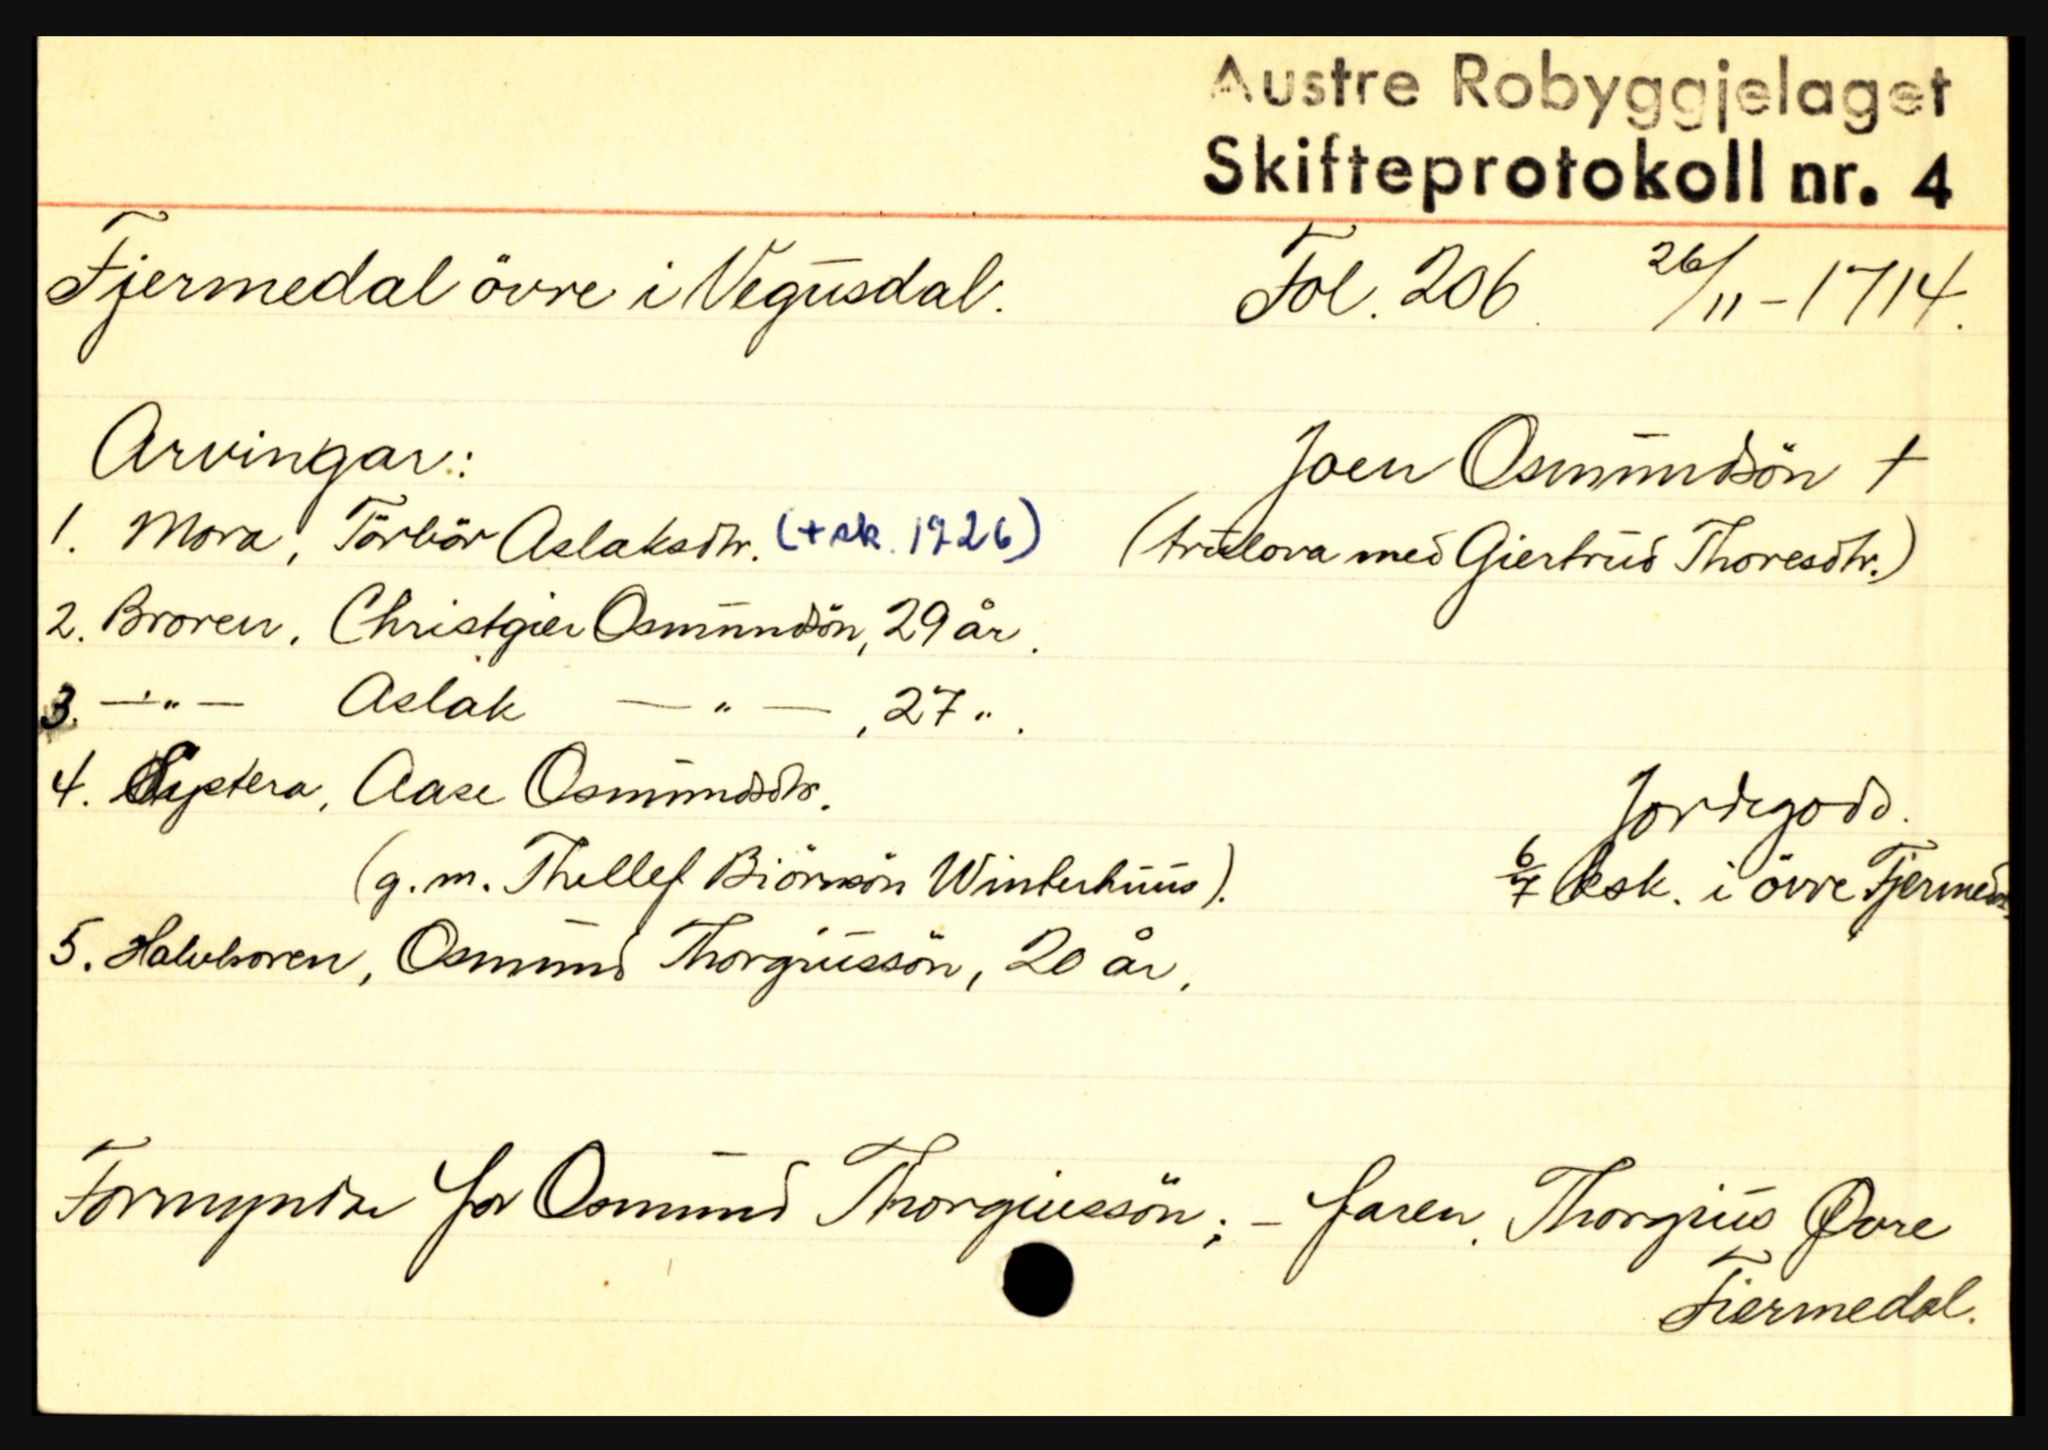 Austre Robyggjelaget
Skifteprotokoll nr. 4
Fjermedal övre i Vegusdal. Fol. 206. 26/11-1714.
Arvingar: Joen Osmundsön +
1. Mora, Törbör Aslaksdtr. (+ sk. 1726) (trulova med Giertrud Thoresdtr.)
2. Broren, Christgier Osmundsön, 29 år.
3. —"— Aslak —"—, 27 ".
4. Systera, Aase Osmundsdtr. Jordegods.
(g.m. Thellef Biörnsön Winterhuus). 6/7 i övre Fjermed
5. Halvbroren, Osmund Thorgiussön, 20 år.
Formyndar for Osmund Thorgiussön; - faren, Thorgius Øvre
Fiermedal.